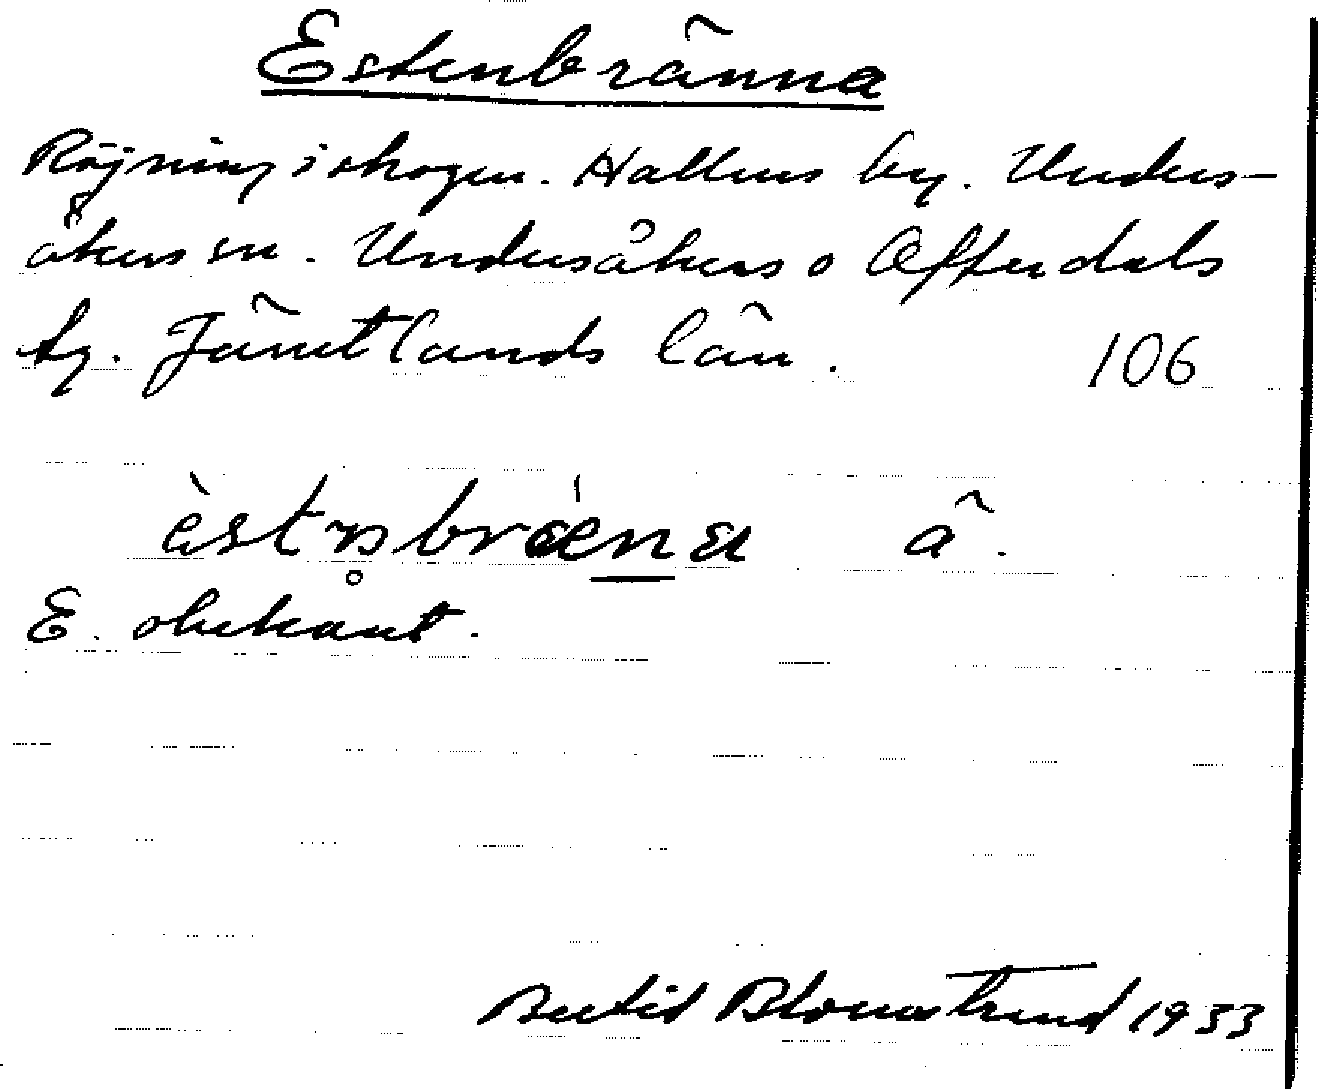 Estenbränna
Röjning i skogen. Hallens by. Unders-
åkers sn. Undersåkers o Offerdals
tg. Jämtlands län. 106
èstn̥bræ̀na â.
E. obekant.
Bertil Blomstrand 1933